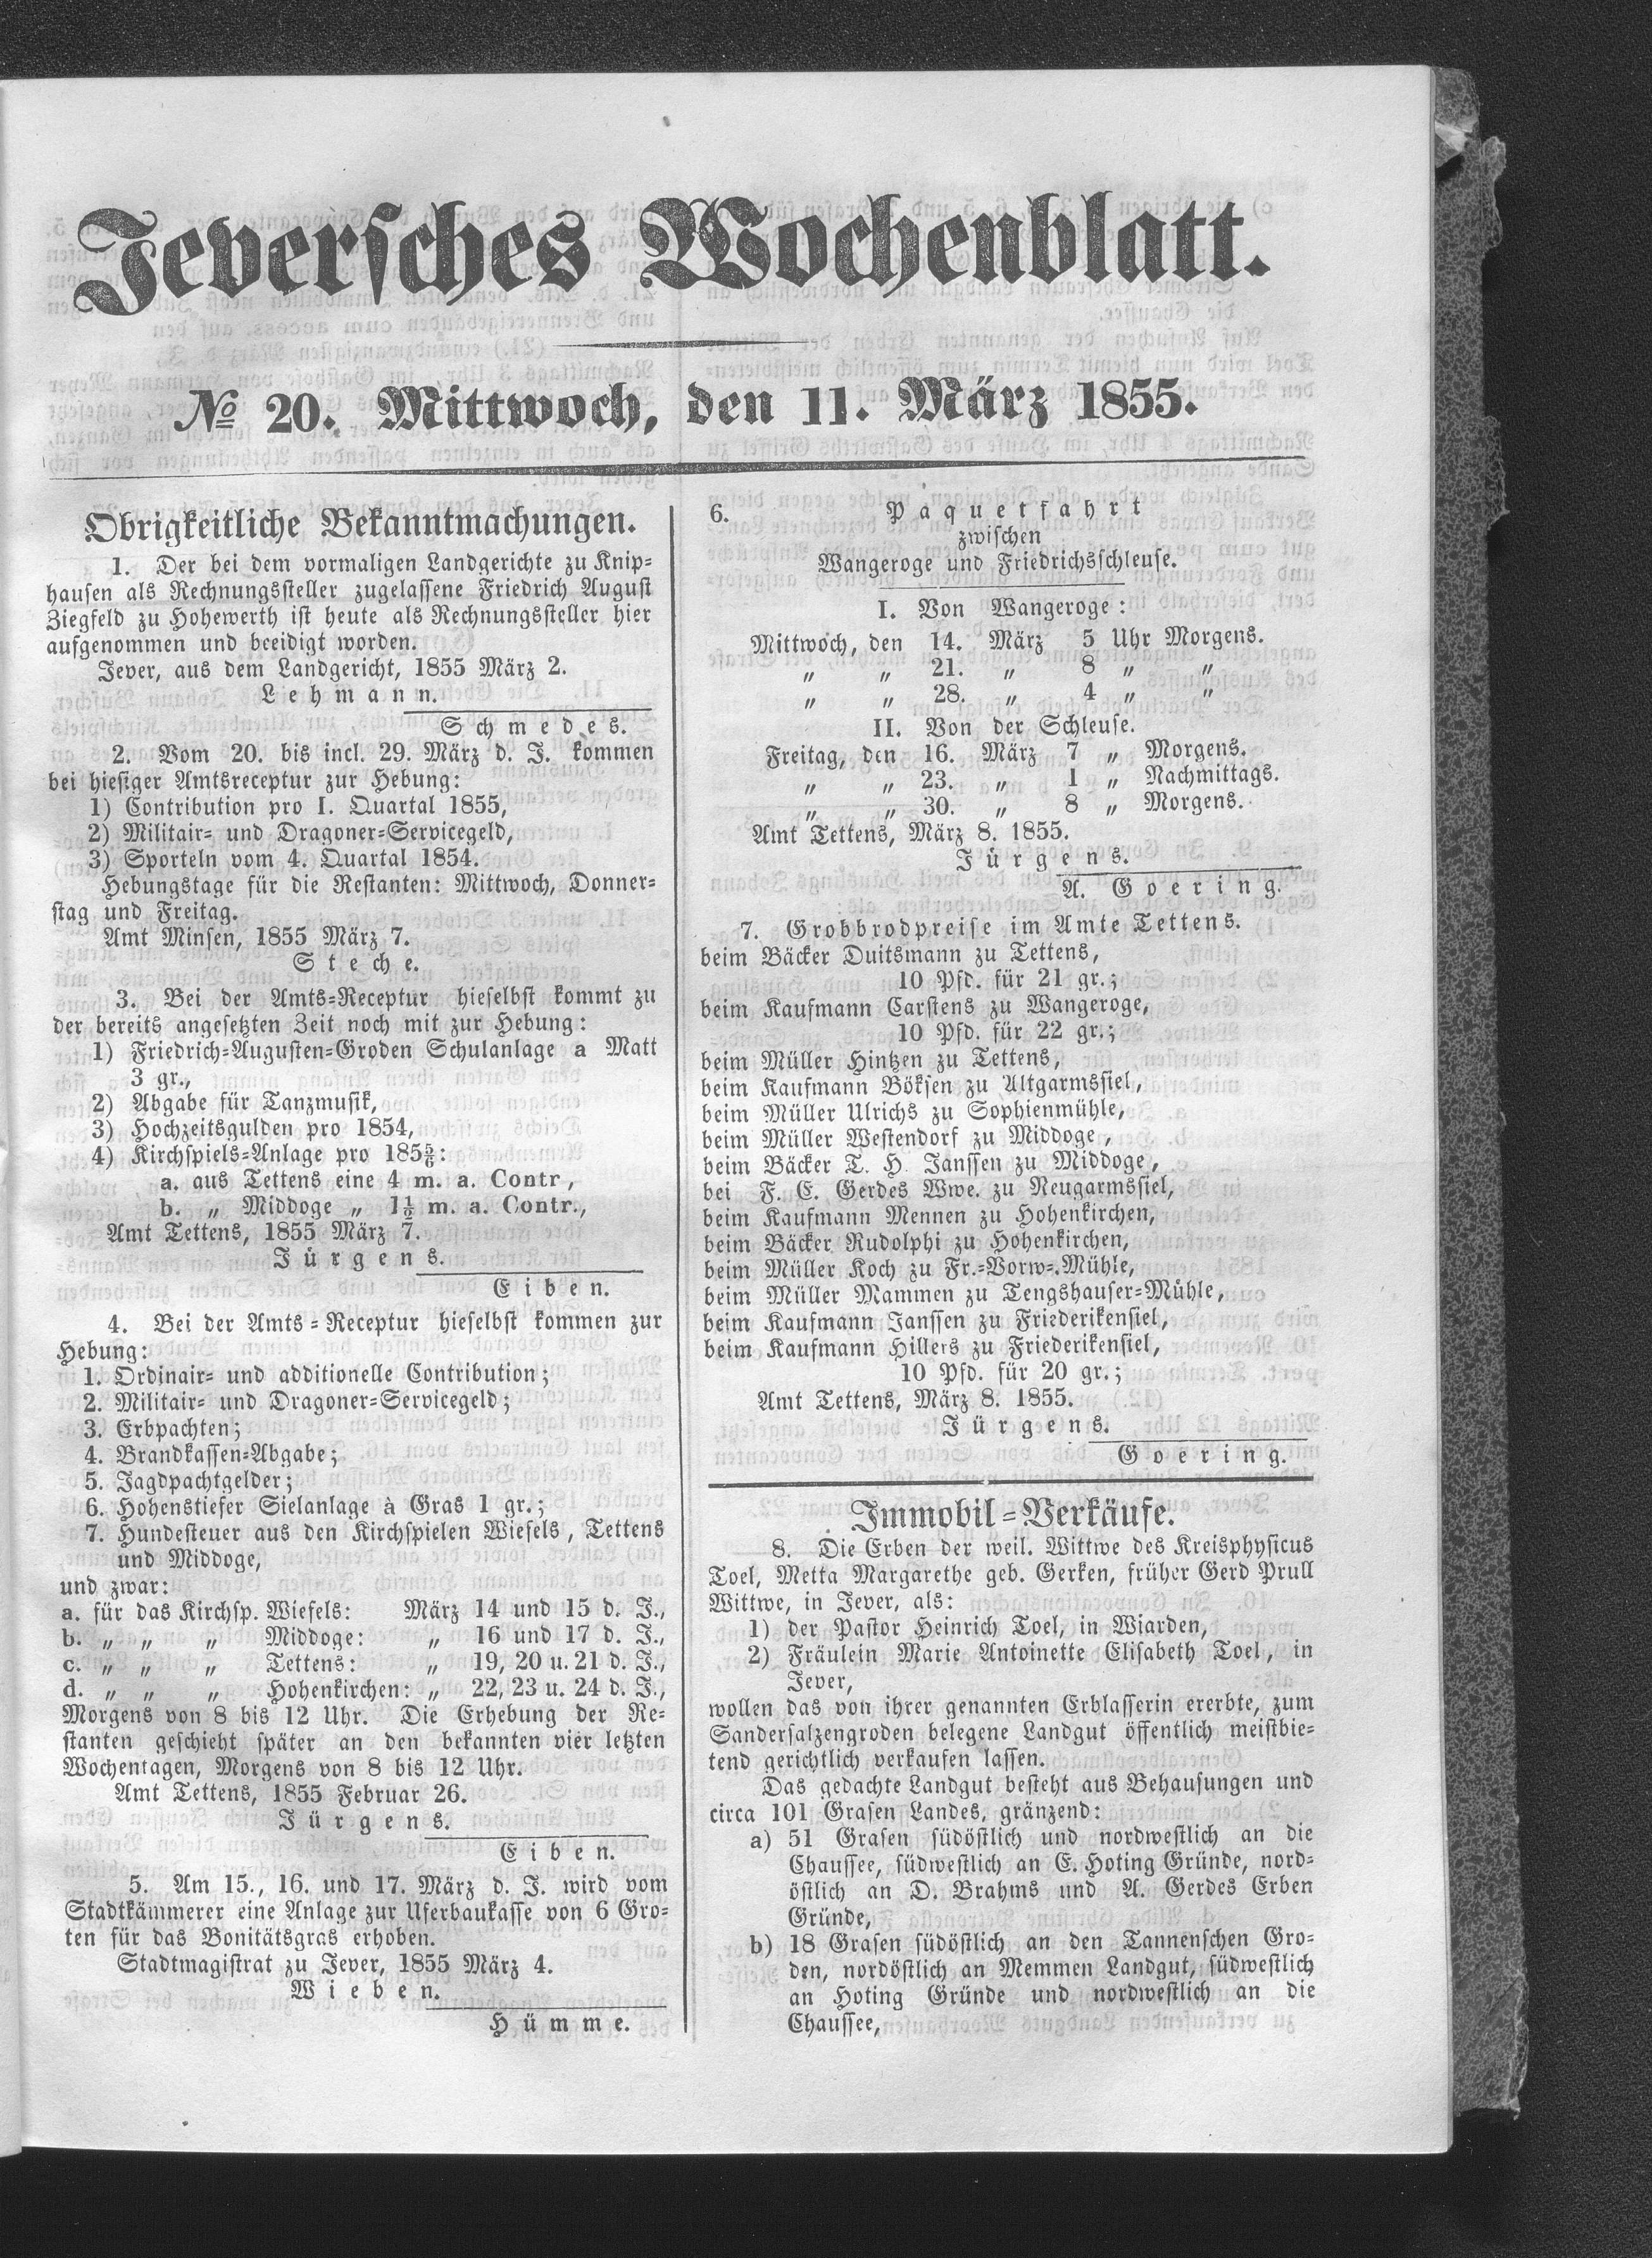 Jeversches Wochenblatt.
№ 20. Mittwoch, den 11. März 1855.
Obrigkeitliche Bekanntmachungen.
1. Der bei dem vormaligen Landgerichte zu Knip=
hausen als Rechnungssteller zugelassene Friedrich August
Ziegfeld zu Hohewerth ist heute als Rechnungssteller hier
aufgenommen und beeidigt worden.
Jever, aus dem Landgericht, 1855 März 2.
Lehmann.
Schmedes.
2. Vom 20. bis incl. 29. März d. J. kommen
bei hiesiger Amtsreceptur zur Hebung:
1) Contribution pro I. Quartal 1855,
2) Militair= und Dragoner=Servicegeld,
3) Sporteln vom 4. Quartal 1854.
Hebungstage für die Restanten: Mittwoch, Donner=
stag und Freitag.
Amt Minsen, 1855 März 7.
Steche.
3. Bei der Amts=Receptur hieselbst kommt zu
der bereits angesetzten Zeit noch mit zur Hebung:
1) Friedrich=Augusten=Groden Schulanlage a Matt
3 gr.,
2) Abgabe für Tanzmusik,
3) Hochzeitsgulden pro 1854,
4) Kirchspiels=Anlage pro 185⅚:
a. aus Tettens eine 4 m. a. Contr,
b. „ Middoge „ 1⅙ m. a. Contr.,
Amt Tettens, 1855 März 7.
Jürgens.
Eiben.
4. Bei der Amts=Receptur hieselbst kommen zur
Hebung:
1. Ordinair= und additionelle Contribution;
2. Militair= und Dragoner=Servicegeld;
3. Erbpachten;
4. Brandkassen=Abgabe;
5. Jagdpachtgelder;
6. Hohenstiefer Sielanlage à Gras 1 gr.;
7. Hundesteuer aus den Kirchspielen Wiefels, Tettens
und Middoge,
und zwar:
a. für das Kirchsp. Wiefels: März 14 und 15 d. J.,
b. „ „ „ Middoge: „ 16 und 17 d. J.,
c. „ „ „ Tettens: „ 19, 20 u. 21 d. J.,
d. „ „ „ Hohenkirchen: „ 22, 23 u. 24 d. J.,
Morgens von 8 bis 12 Uhr. Die Erhebung der Re=
stanten geschieht später an den bekannten vier letzten
Wochentagen, Morgens von 8 bis 12 Uhr.
Amt Tettens, 1855 Februar 26.
Jürgens.
Eiben.
5. Am 15., 16. und 17. März d. J. wird vom
Stadtkämmerer eine Anlage zur Uferbaukasse von 6 Gro=
ten für das Bonitätsgras erhoben.
Stadtmagistrat zu Jever, 1855 März 4.
Wieben.
Hümme.
6. Paquetfahrt
zwischen
Wangeroge und Friedrichsschleuse.
I. Von Wangeroge:
Mittwoch, den 14. März 5 Uhr Morgens.
„ „ 21. „ 8 „ „
„ „ 28. „ 4 „ „
II. Von der Schleuse.
Freitag, den 16. März 7 „ Morgens.
„ „ 23. „ 1 „ Nachmittags.
„ „ 30. „ 8 „ Morgens.
Amt Tettens, März 8. 1855.
Jürgens.
A. Goering.
7. Grobbrodpreise im Amte Tettens.
beim Bäcker Duitsmann zu Tettens,
10 Pfd. für 21 gr.;
beim Kaufmann Carstens zu Wangeroge,
10 Pfd. für 22 gr.;
beim Müller Hintzen zu Tettens,
beim Kaufmann Böksen zu Altgarmssiel,
beim Müller Ulrichs zu Sophienmühle,
beim Müller Westendorf zu Middoge,
beim Bäcker T. H. Janssen zu Middoge,
bei F. E. Gerdes Wwe. zu Neugarmssiel,
beim Kaufmann Mennen zu Hohenkirchen,
beim Bäcker Rudolphi zu Hohenkirchen,
beim Müller Koch zu Fr.=Vorw=.Mühle,
beim Müller Mammen zu Tengshauser=Mühle,
beim Kaufmann Janssen zu Friederikensiel,
beim Kaufmann Hillers zu Friederikensiel,
10 Pfd. für 20 gr.;
Amt Tettens, März 8. 1855.
Jürgens.
Goering.
Immobil=Verkäufe.
8. Die Erben der weil. Wittwe des Kreisphysicus
Toel, Metta Margarethe geb. Gerken, früher Gerd Prull
Wittwe, in Jever, als:
1) der Pastor Heinrich Toel, in Wiarden,
2) Fräulein Marie Antoinette Elisabeth Toel, in
Jever,
wollen das von ihrer genannten Erblasserin ererbte, zum
Sandersalzengroden belegene Landgut öffentlich meistbie=
tend gerichtlich verkaufen lassen.
Das gedachte Landgut besteht aus Behausungen und
circa 101 Grasen Landes, gränzend:
a) 51 Grasen südöstlich und nordwestlich an die
Chaussee, südwestlich an E. Hoting Gründe, nord=
östlich an D. Brahms und A. Gerdes Erben
Gründe,
b) 18 Grasen südöstlich an den Tannenschen Gro=
den, nordöstlich an Memmen Landgut, südwestlich
an Hoting Gründe und nordwestlich an die
Chaussee,